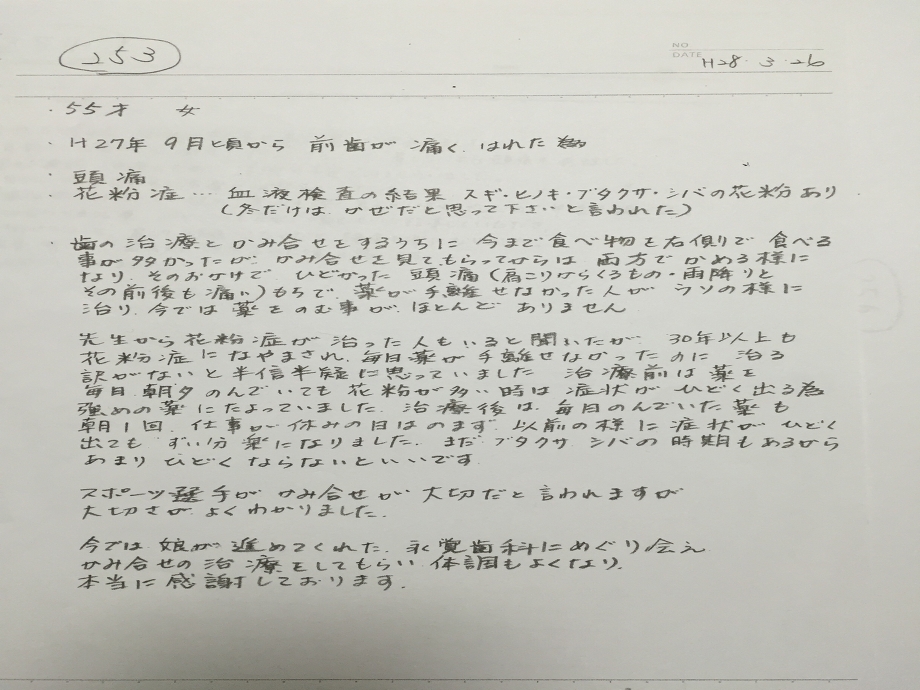 253
NO
DATE H28・3・26
・55才 女
・H27年 9月頃から 前歯が 痛く、はれた為
・頭痛
・花粉症… 血液検査の結果 スギ・ヒノキ・ブタクサ・シバの花粉あり
(冬だけは かぜだと思って下さいと言われた)
・歯の治療とかみ合せをするうちに 今まで食べ物を右側りで 食べる
事が多かったが、かみ合せを見てもらってからは 両方でかめる様に
なり、そのおかげで、ひどかった 頭痛(肩こりからくるもの・雨降りと
その前後も痛い)もちで、薬が手離せなかった人が ウソの様に
治り、今では 薬をのむ事が、ほとんど ありません
先生から花粉症が治った人もいると聞いたが 30年以上も
花粉症になやまされ、毎日薬が手離せなかったのに 治る
訳がないと半信半疑に思っていました 治療前は薬を
毎日、朝夕のんでいても 花粉が多い時は 症状が ひどく出る為
強めの薬にたよっていました。治療後は、毎日のんでいた薬も
朝1回、仕事が休みの日はのまず、以前の様に症状が ひどく
出ても ずい分楽になりました。まだブタクサ シバの時期もあるから
あまり ひどく ならないといいです。
スポーツ選手が かみ合せが 大切だと言われますが
大切さが よくわかりました。
今では 娘が 進めてくれた、永覚歯科にめぐり会え
かみ合せの治療をしてもらい、体調もよくなり、
本当に感謝しております。